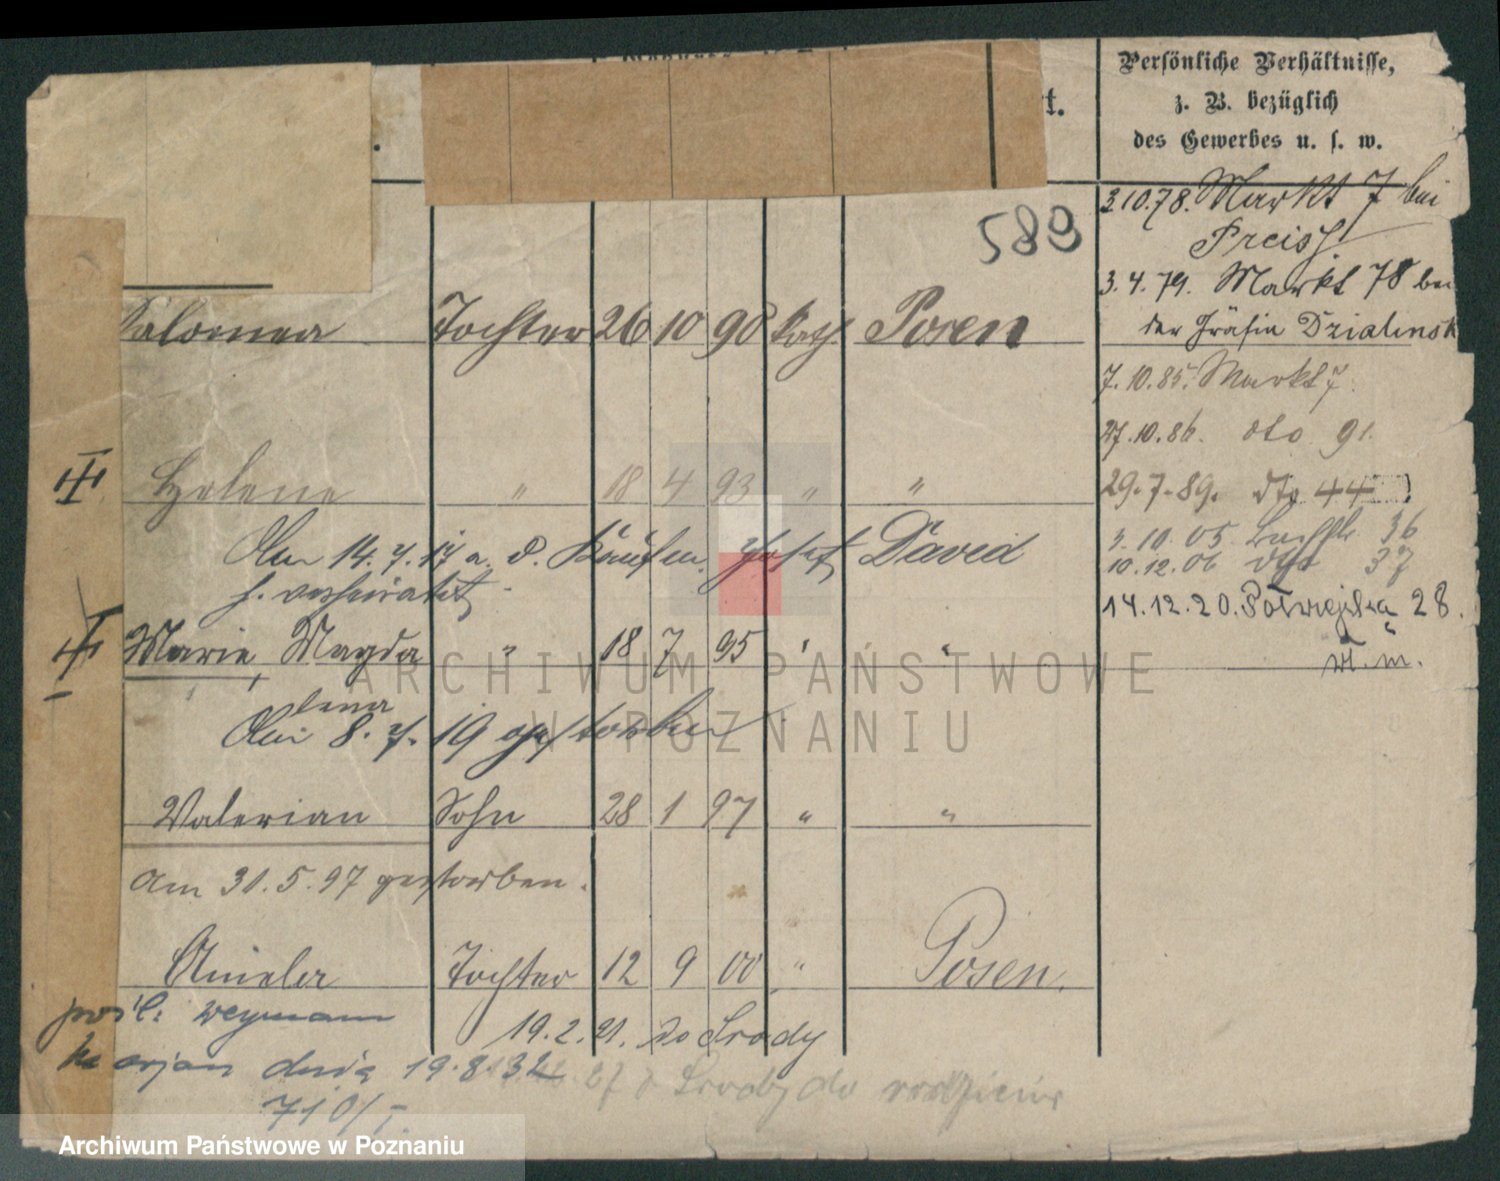 Persönliche Verhältnisse,
z. B. bezüglich
des Gewerbes u. s. w.
583
3.10.78. Markt 7 bei
Preiss
3.4.79. Markt 78 bei
der Gräfin Dzialinsk
7.10.85. Markt 7.
27.10.86. dto 91.
29.7.89. dto 44
3.10.05. 36
10.12.06 dto 37
14.12.20. Półwiejska 28.
W. m.
Salomea Tochter 26 10 90 kath. Posen
Helene " 18 4 93 " "
Am 14.7.17 a. d. Josef David
h. verheiratet
Marie, Magda " 18 7 95 " "
lena
Am 8.7.19 gestorben
Valerian Sohn 28 1 97 " "
Am 31.5.97 gestorben.
Aniela Tochter 12 9 00 " Posen.
pośl: Weymann
19.2.21. do Środy
Marjan dnia 19.8.32
z Środy do rodziców
710/I.
ARCHIWUM PAŃSTWOWE
W POZNANIU
Archiwum Państwowe w Poznaniu